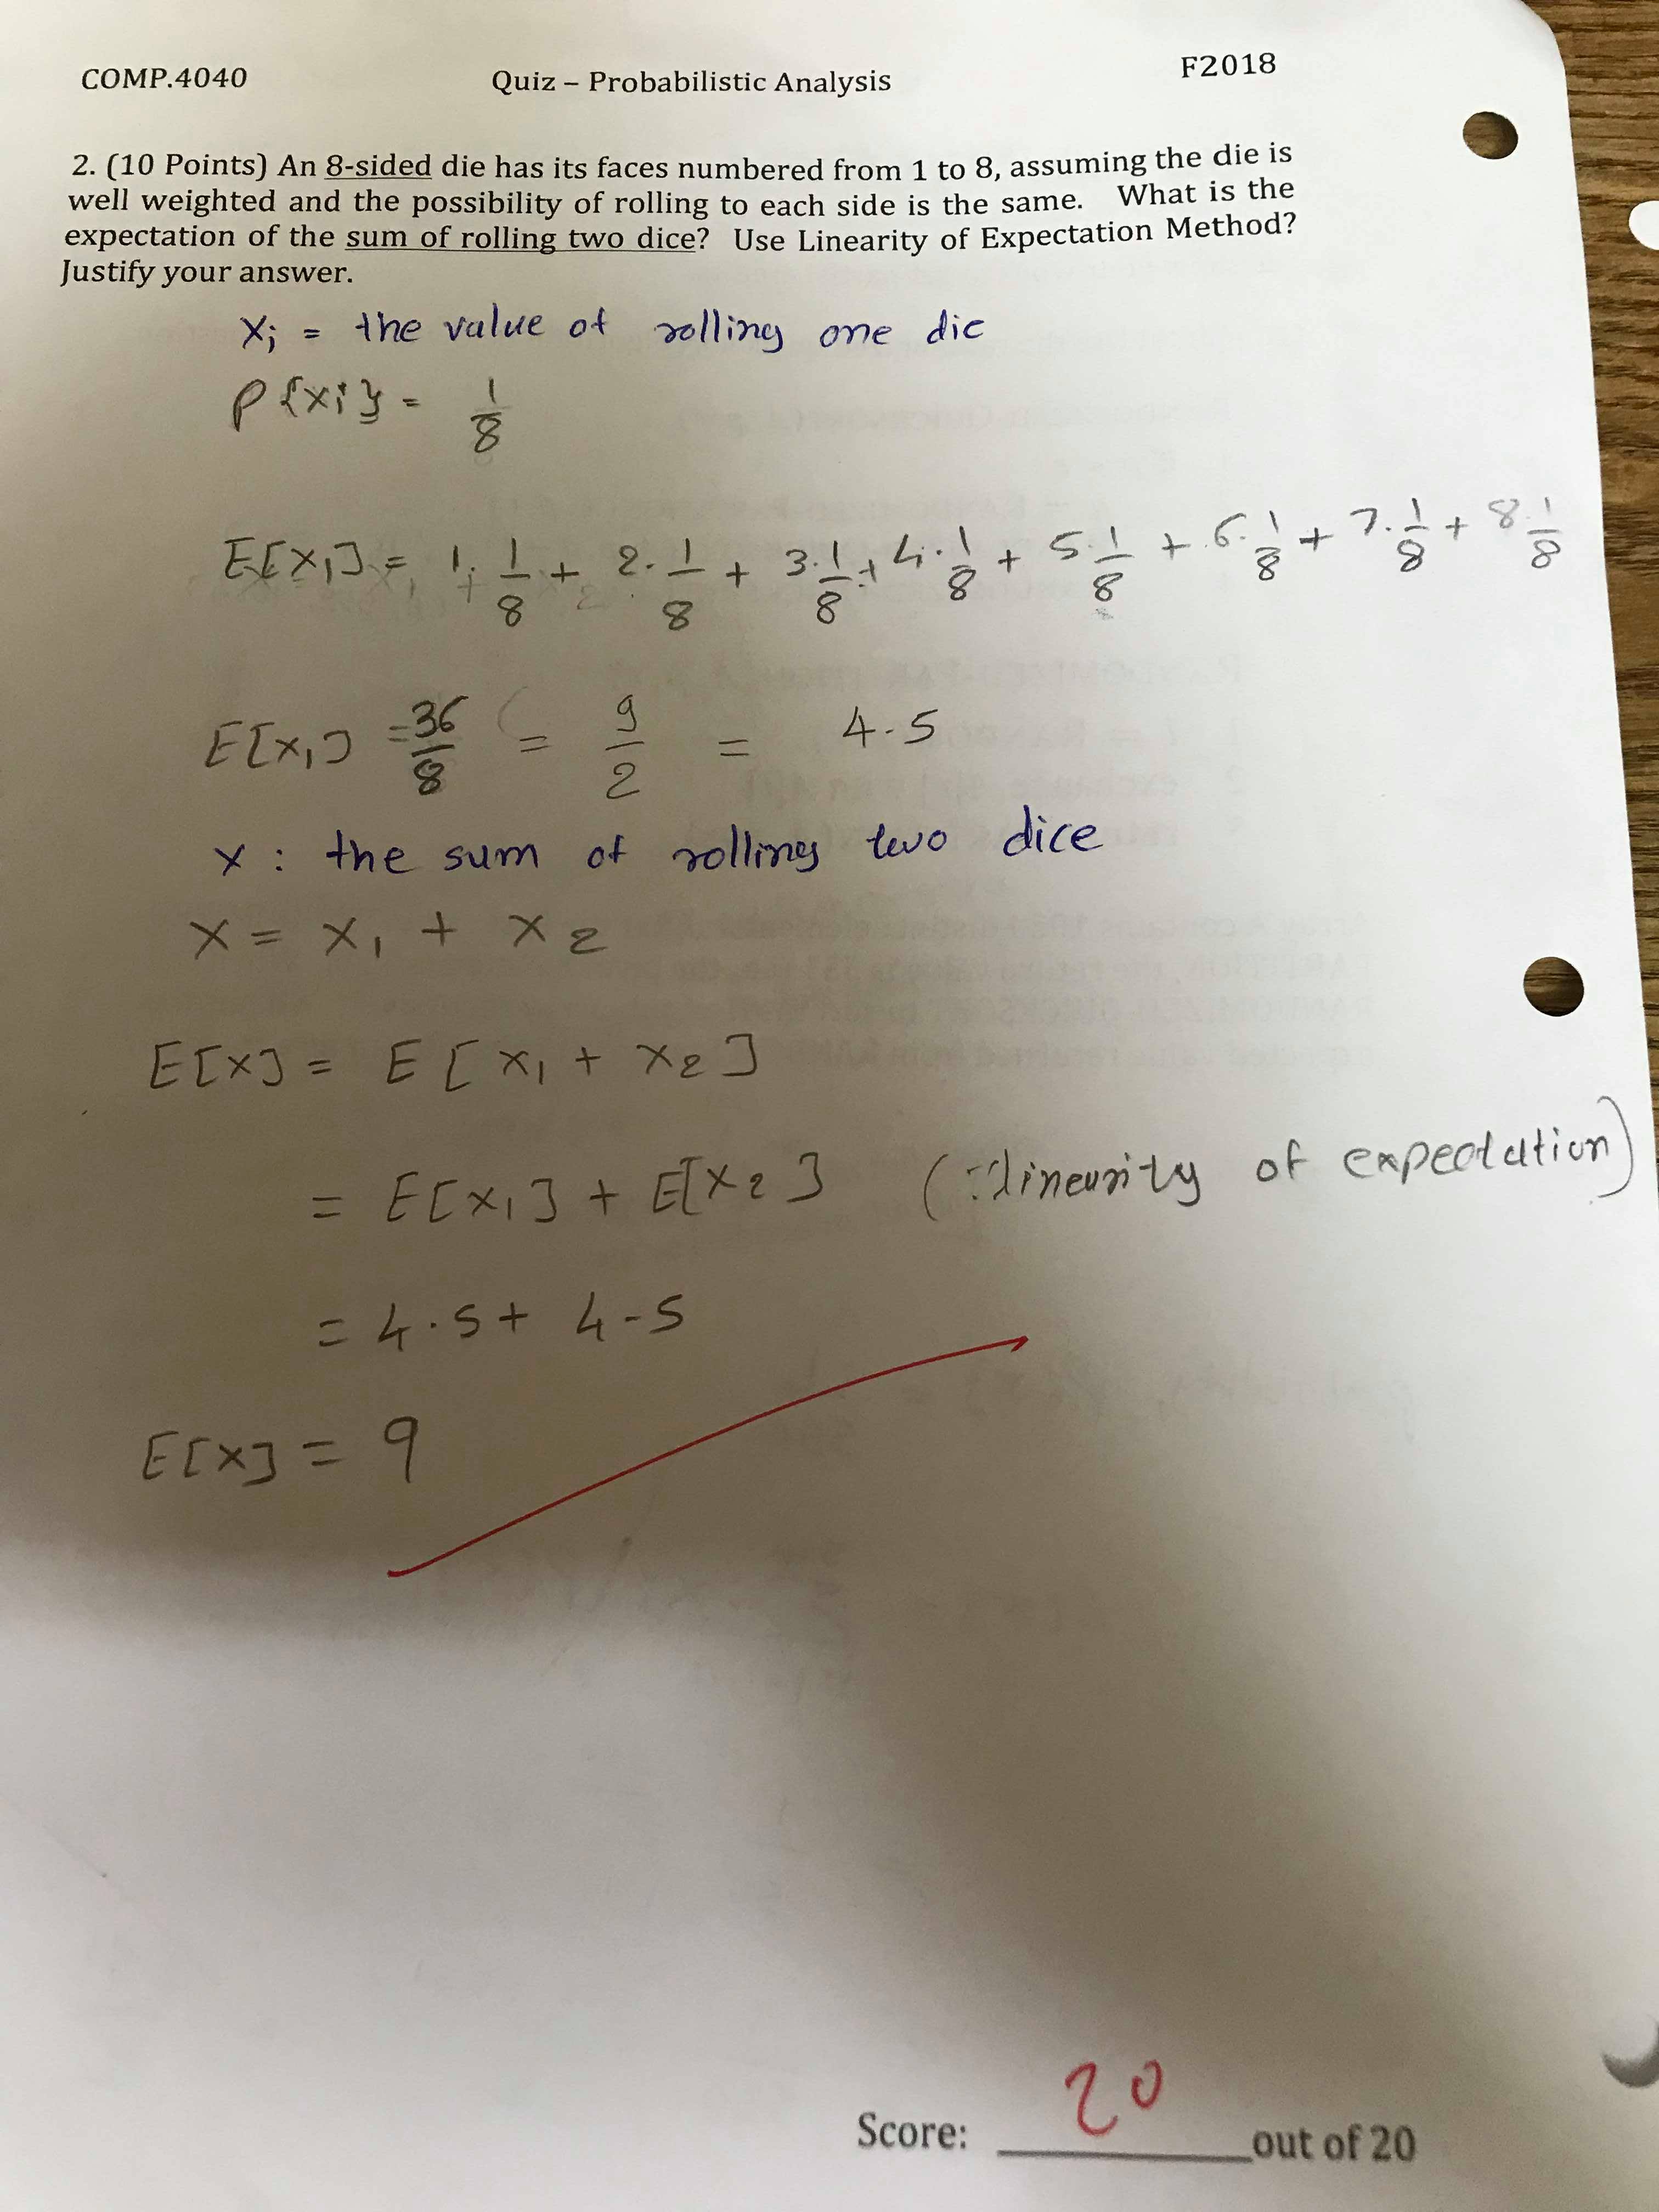 COMP.4040 Quiz – Probabilistic Analysis F2018
2. (10 Points) An 8-sided die has its faces numbered from 1 to 8, assuming the die is
well weighted and the possibility of rolling to each side is the same. What is the
expectation of the sum of rolling two dice? Use Linearity of Expectation Method?
Justify your answer.
Xi = the value of rolling one die
P{xi} = 1/8
E[X1] = 1. 1/8 + 2. 1/8 + 3. 1/8 + 4. 1/8 + 5. 1/8 + 6. 1/8 + 7. 1/8 + 8. 1/8
E[X1] = 36/8 = 9/2 = 4.5
X : the sum of rolling two dice
X = X1 + X2
E[X] = E[X1 + X2]
= E[X1] + E[X2] (∵ linearity of expectation)
= 4.5 + 4.5
E[X] = 9
Score: 20 out of 20